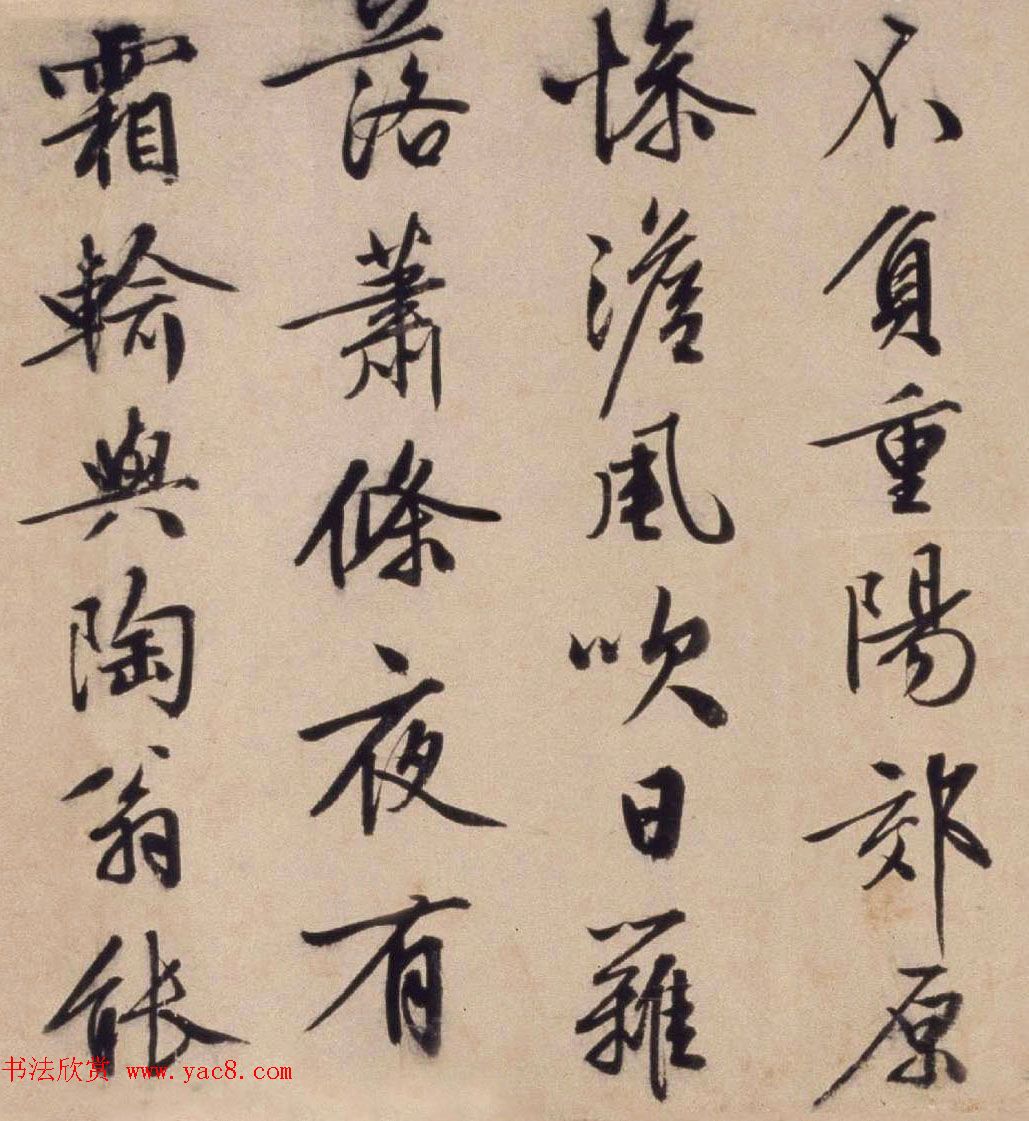 不負重陽郊原
慘澹風吹日籬
落蕭條夜有
霜輸與陶翁能
书法欣赏 www.yac8.com